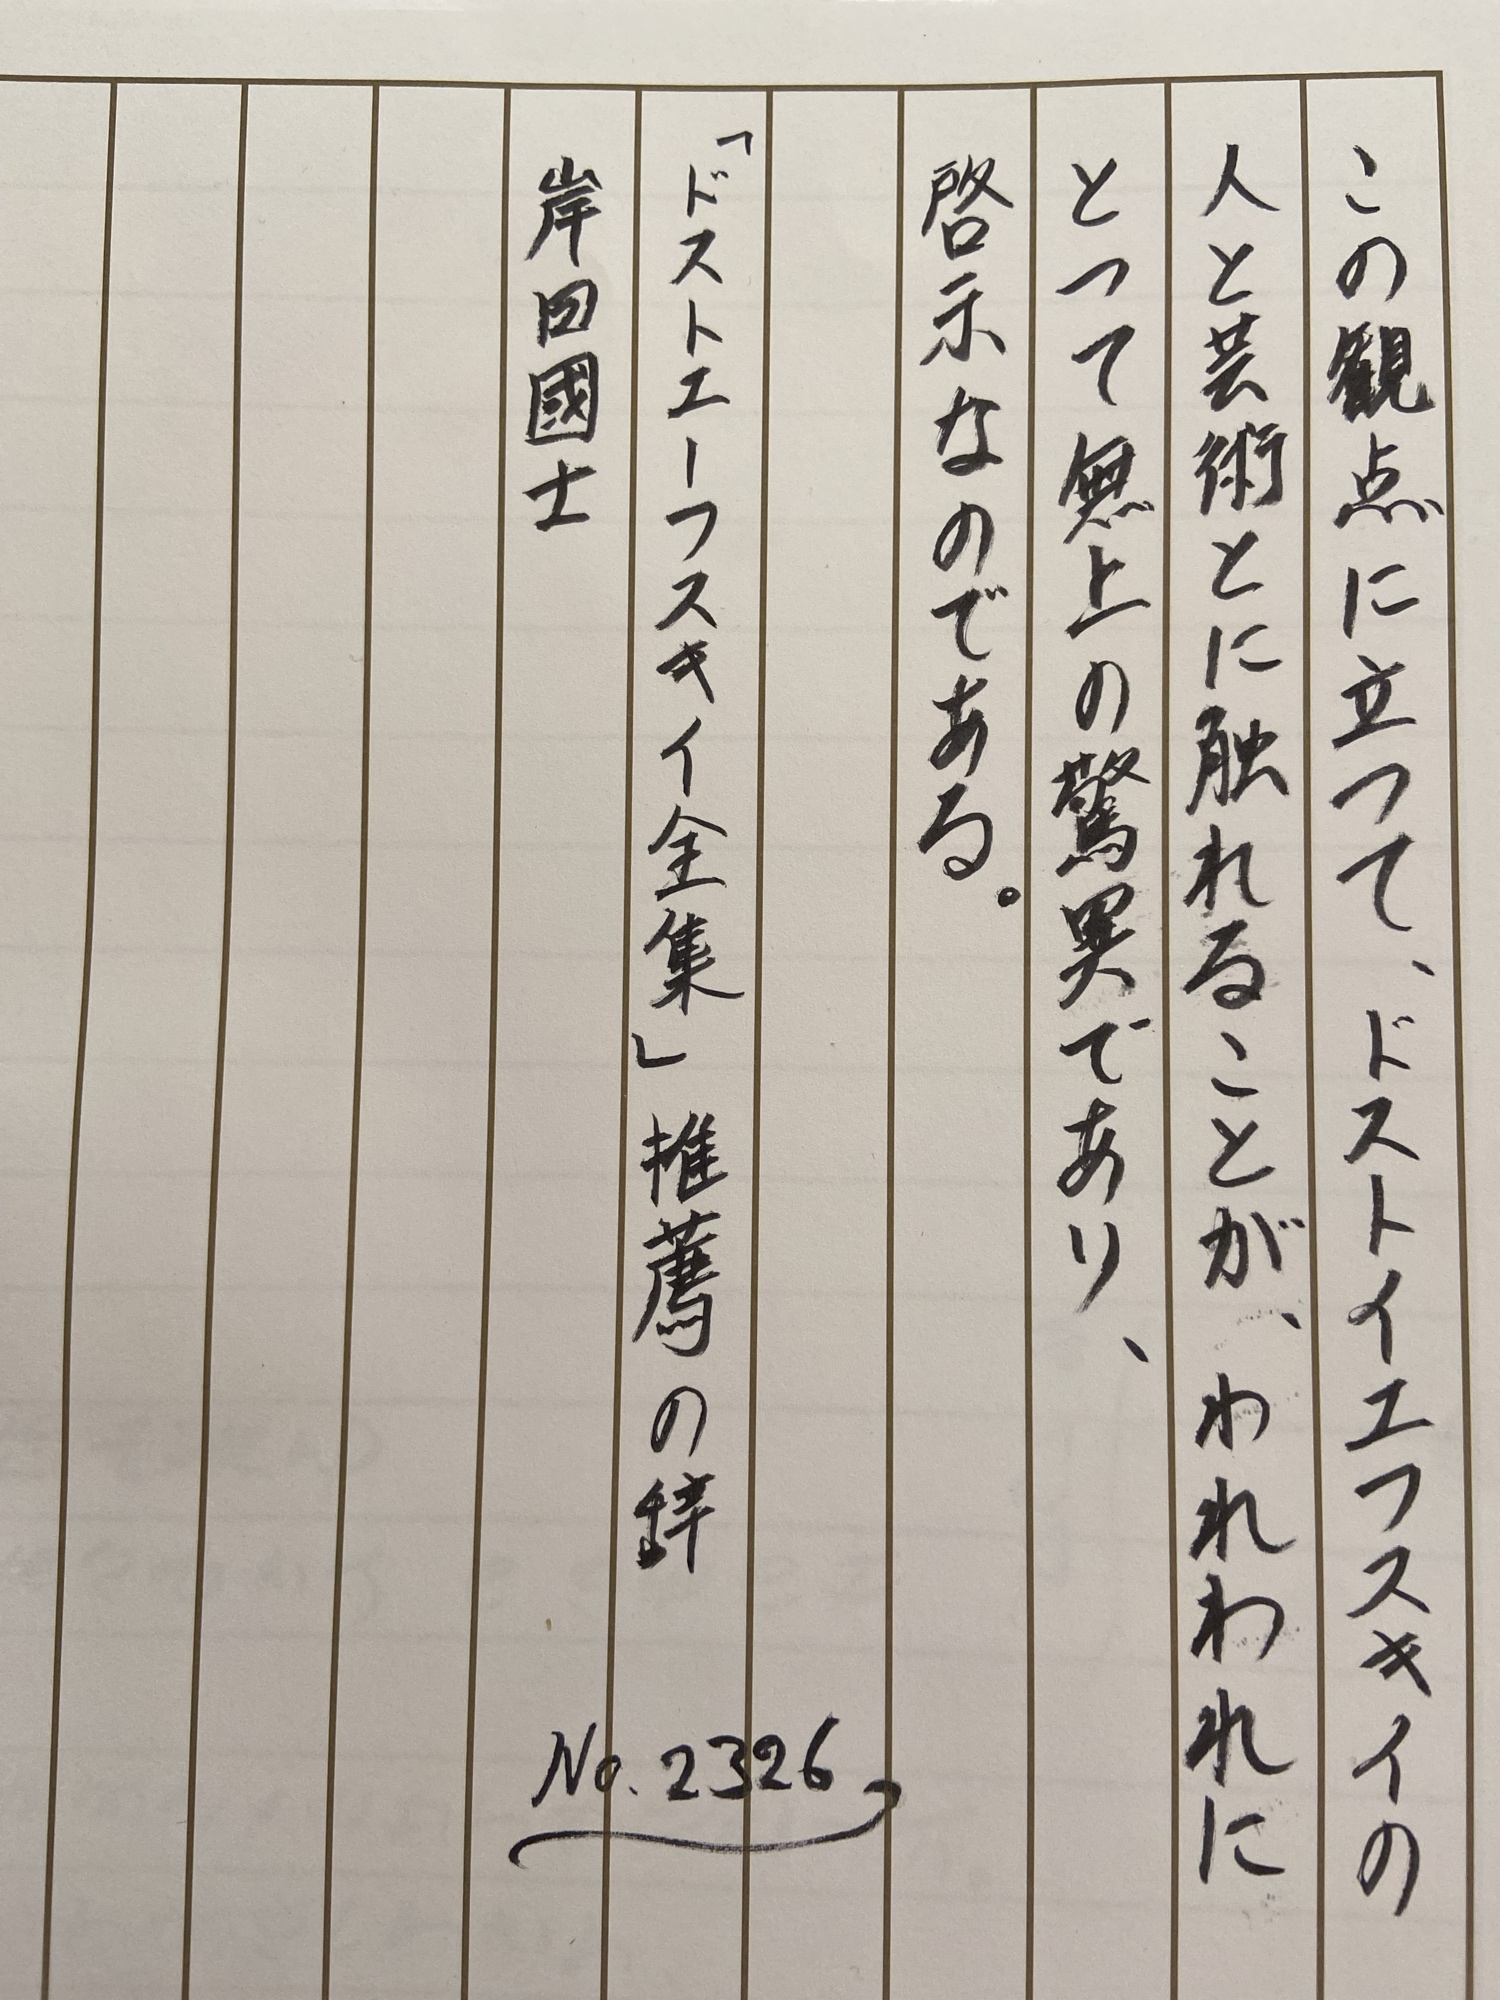 この観点に立つて、ドストイエフスキイの
人と芸術とに触れることが、われわれに
とつて無上の驚異であり、
啓示なのである。
「ドストエーフスキイ全集」推薦の辞
岸田國士
No.2326